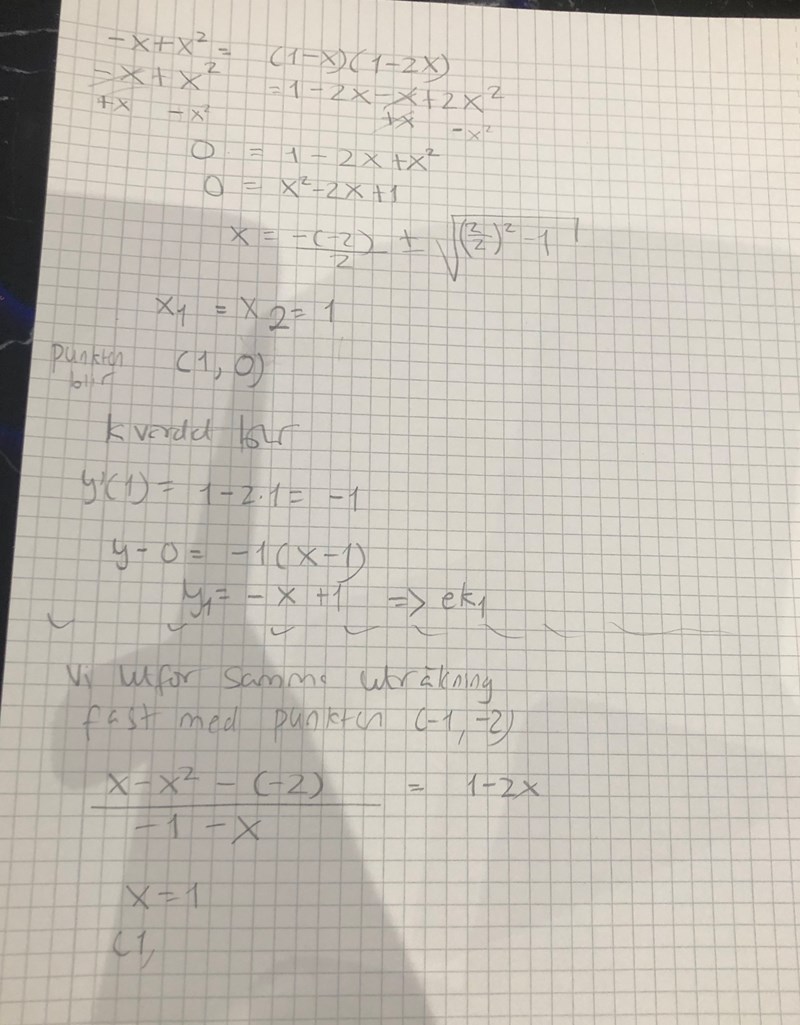 -x+x² = (1-x)(1-2x)
-x+x² = 1-2x-x+2x²
+x -x² +x -x²
0 = 1-2x+x²
0 = x²-2x+1
x = -(-2)/2 ± √((2/2)²-1)
x₁ = x₂ = 1
punkten (1,0)
blir
k värdet blir
y'(1) = 1-2·1 = -1
y-0 = -1(x-1)
y₁ = -x+1 => ek₁
Vi utför samma uträkning
fast med punkten (-1,-2)
x-x²-(-2) / -1-x = 1-2x
x=1
(1,